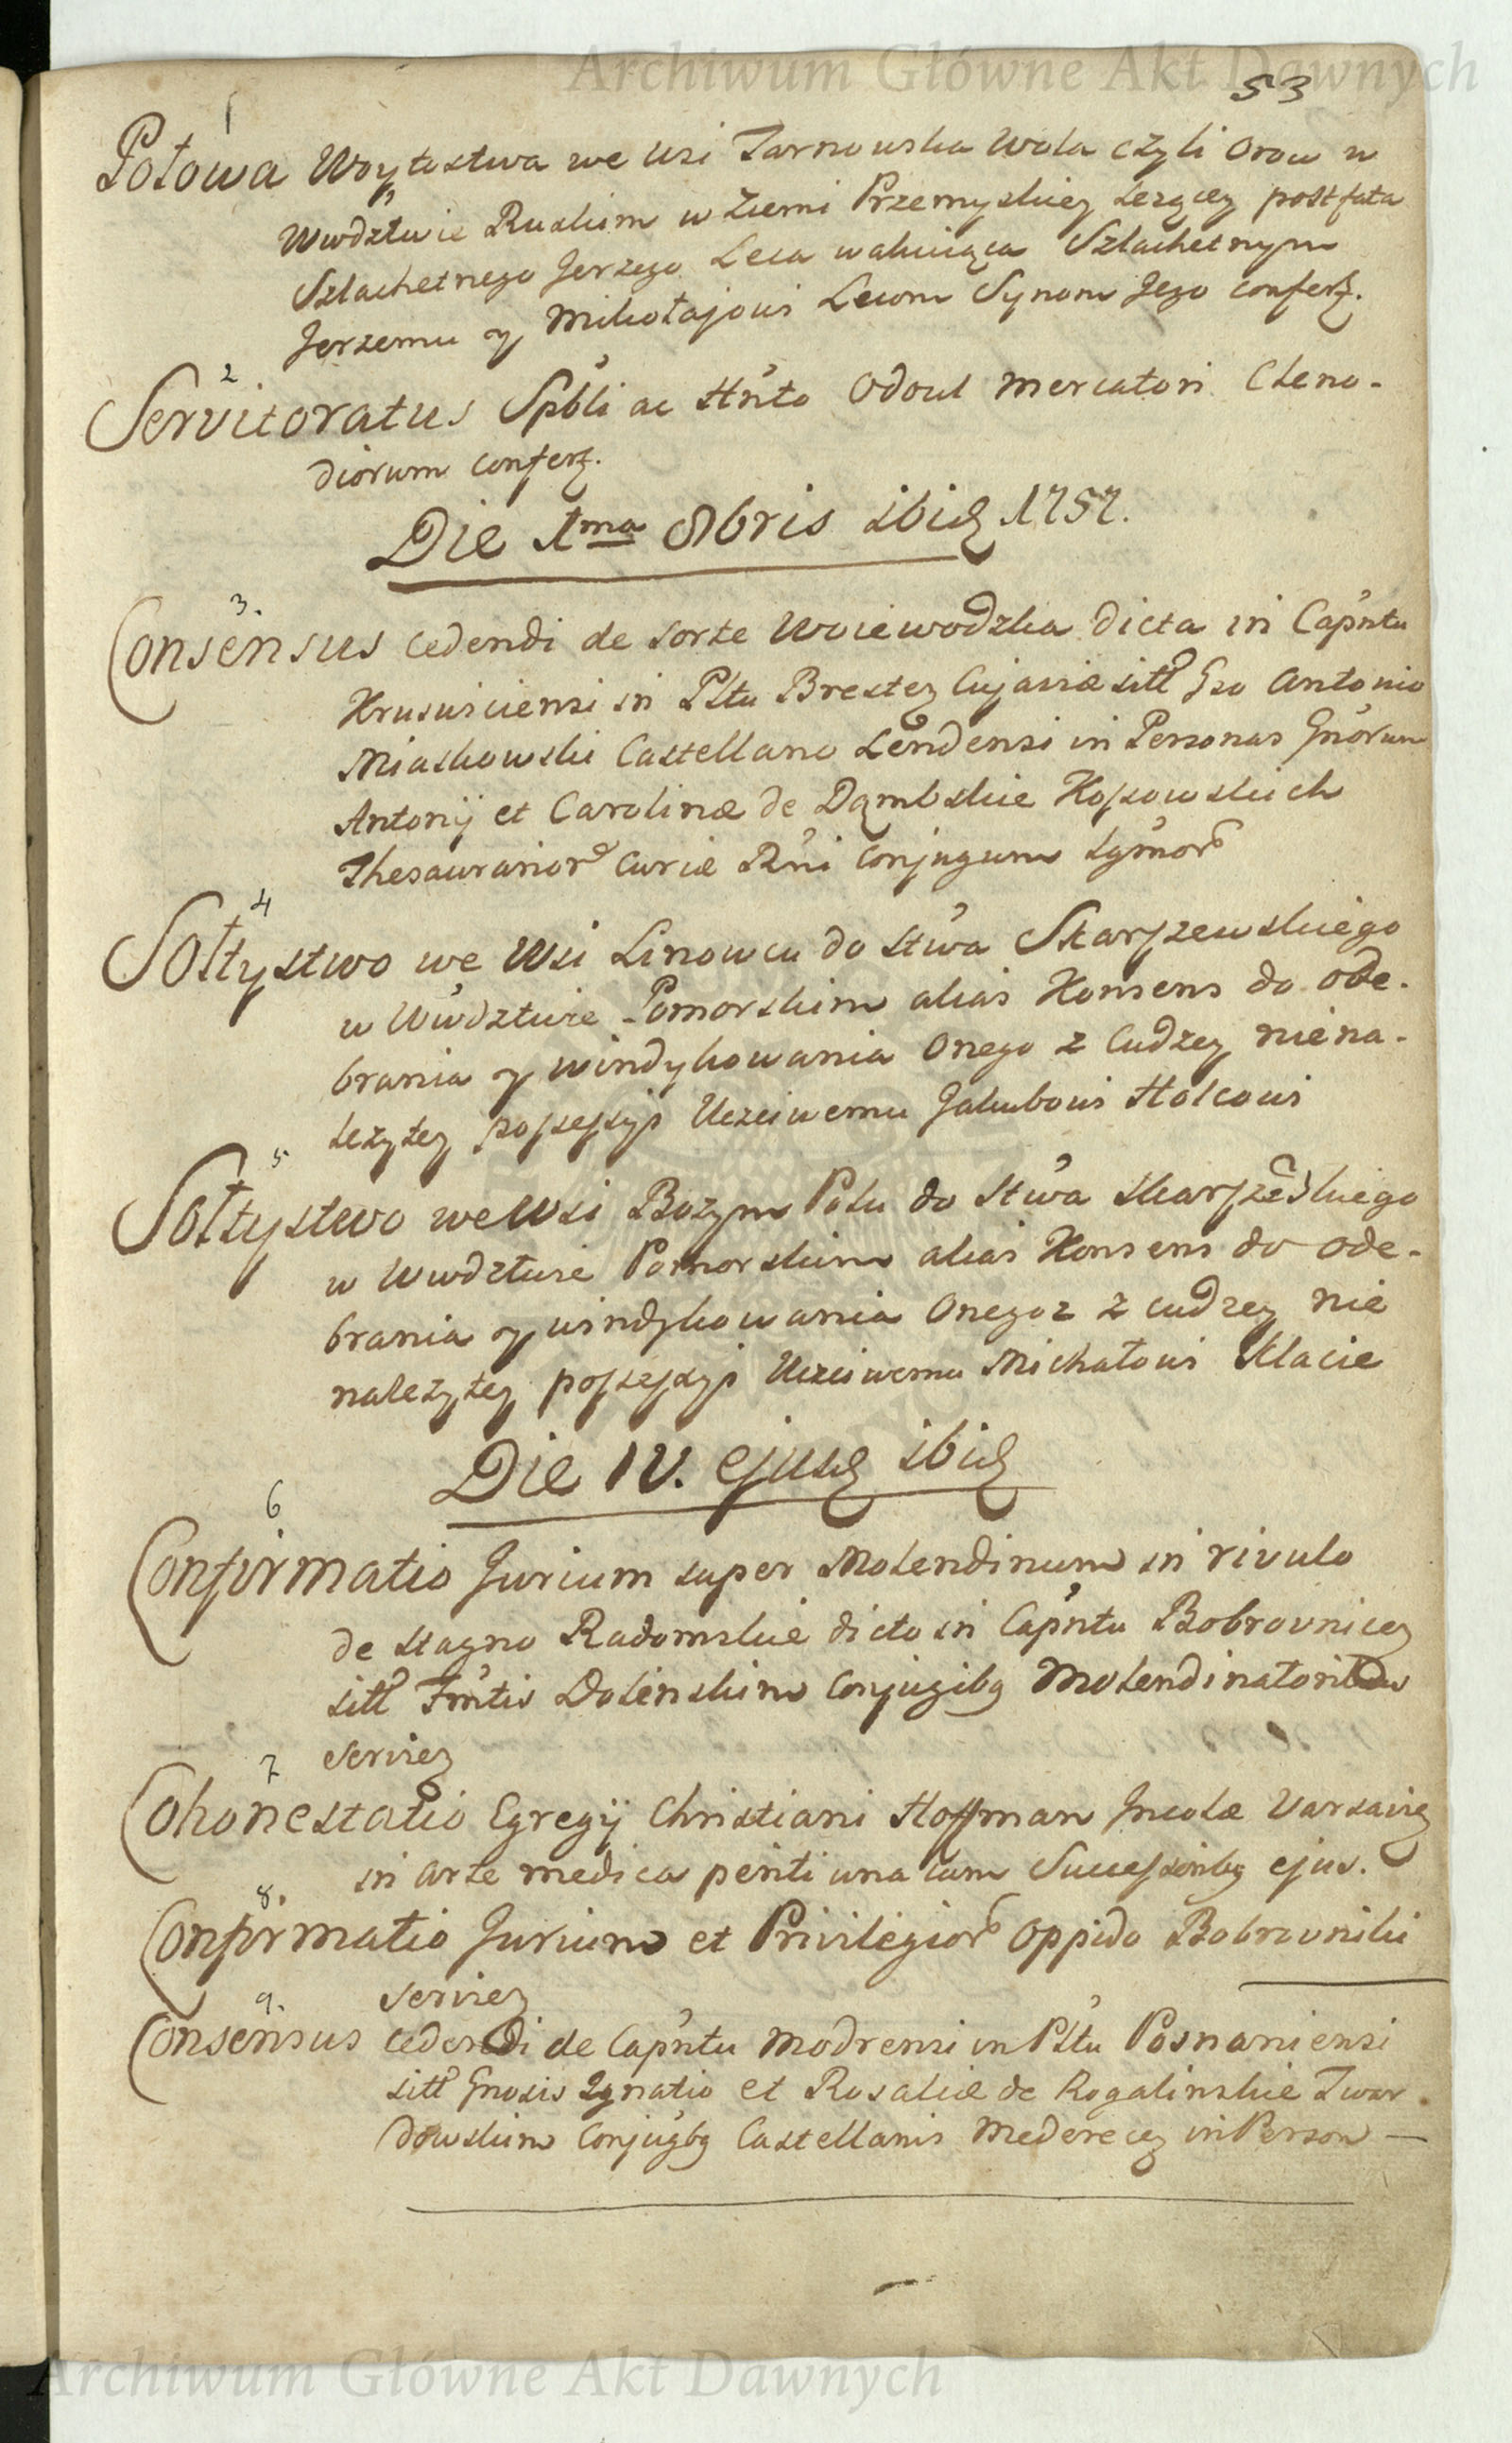 Archiwum Główne Akt Dawnych
53
1
Połowa Woytostwa we Wsi Tarnowska Wola czyli Orow w
Wwdztwie Ruskim w Ziemi Przemyskiey lezącey post fata
Szlachetnego Jerzego Leca wakuiąca Szlachetnym
Jerzemu y Mikołajowi Lecom Synom Jego confert.
2
Servitoratus Spbli ac Hnto Odoul Mercatori Cleno-
diorum confert.
Die 1ma 8bris ibid 1757.
3.
Consensus cedendi de sorte Woiewodzka dicta in Capntu
Kruswiciensi in Pltu Brestez Cujaviæ sitt Gso Antonio
Miaskowski Castellano Lendensi in Personas Gnorum
Antonij et Carolinæ de Dąmbskie Kossowskich
Thesaurarior Curiæ Rni Conjugum Lgmor
4
Sołtystwo we Wsi Linowcu do Stwa Skarszewskiego
w Wwdztwie Pomorskim alias Konsens do ode-
brania y windykowania Onego z Cudzey niena-
lezytey possessyi Uczciwemu Jakubowi Holcowi
5
Sołtystwo we Wsi Bozym Polu do Stwa Skarszeskiego
w Wwdztwie Pomorskim alias Konsens do ode-
brania y windykowania Onegoz z cudzey nie
nalezytey possessyi Uczciwemu Michałowi Klacie
Die IV. ejusd ibid
6
Confirmatio Jurium super Molendinum in rivulo
de stagno Radomskie dicto in Capntu Bobrovnicez
sitt Fmtis Dolenskim Conjugibq Molendinatoribus
serviez
7
Cohonestatio Egregij Christiani Hoffman Incolæ Varsaviez
in arte medica periti una cum Successoribq ejus.
8.
Confirmatio Jurium et Privilegior Oppido Bobrovniki
serviez
9.
Consensus cedendi de Capntu Modrensi in Pltu Posnaniensi
sitt Gnosis Ignatio et Rosaliæ de Rogalinskie Twar
dowskim Conjugbq Castellanis Mederecez in Person —
Archiwum Główne Akt Dawnych